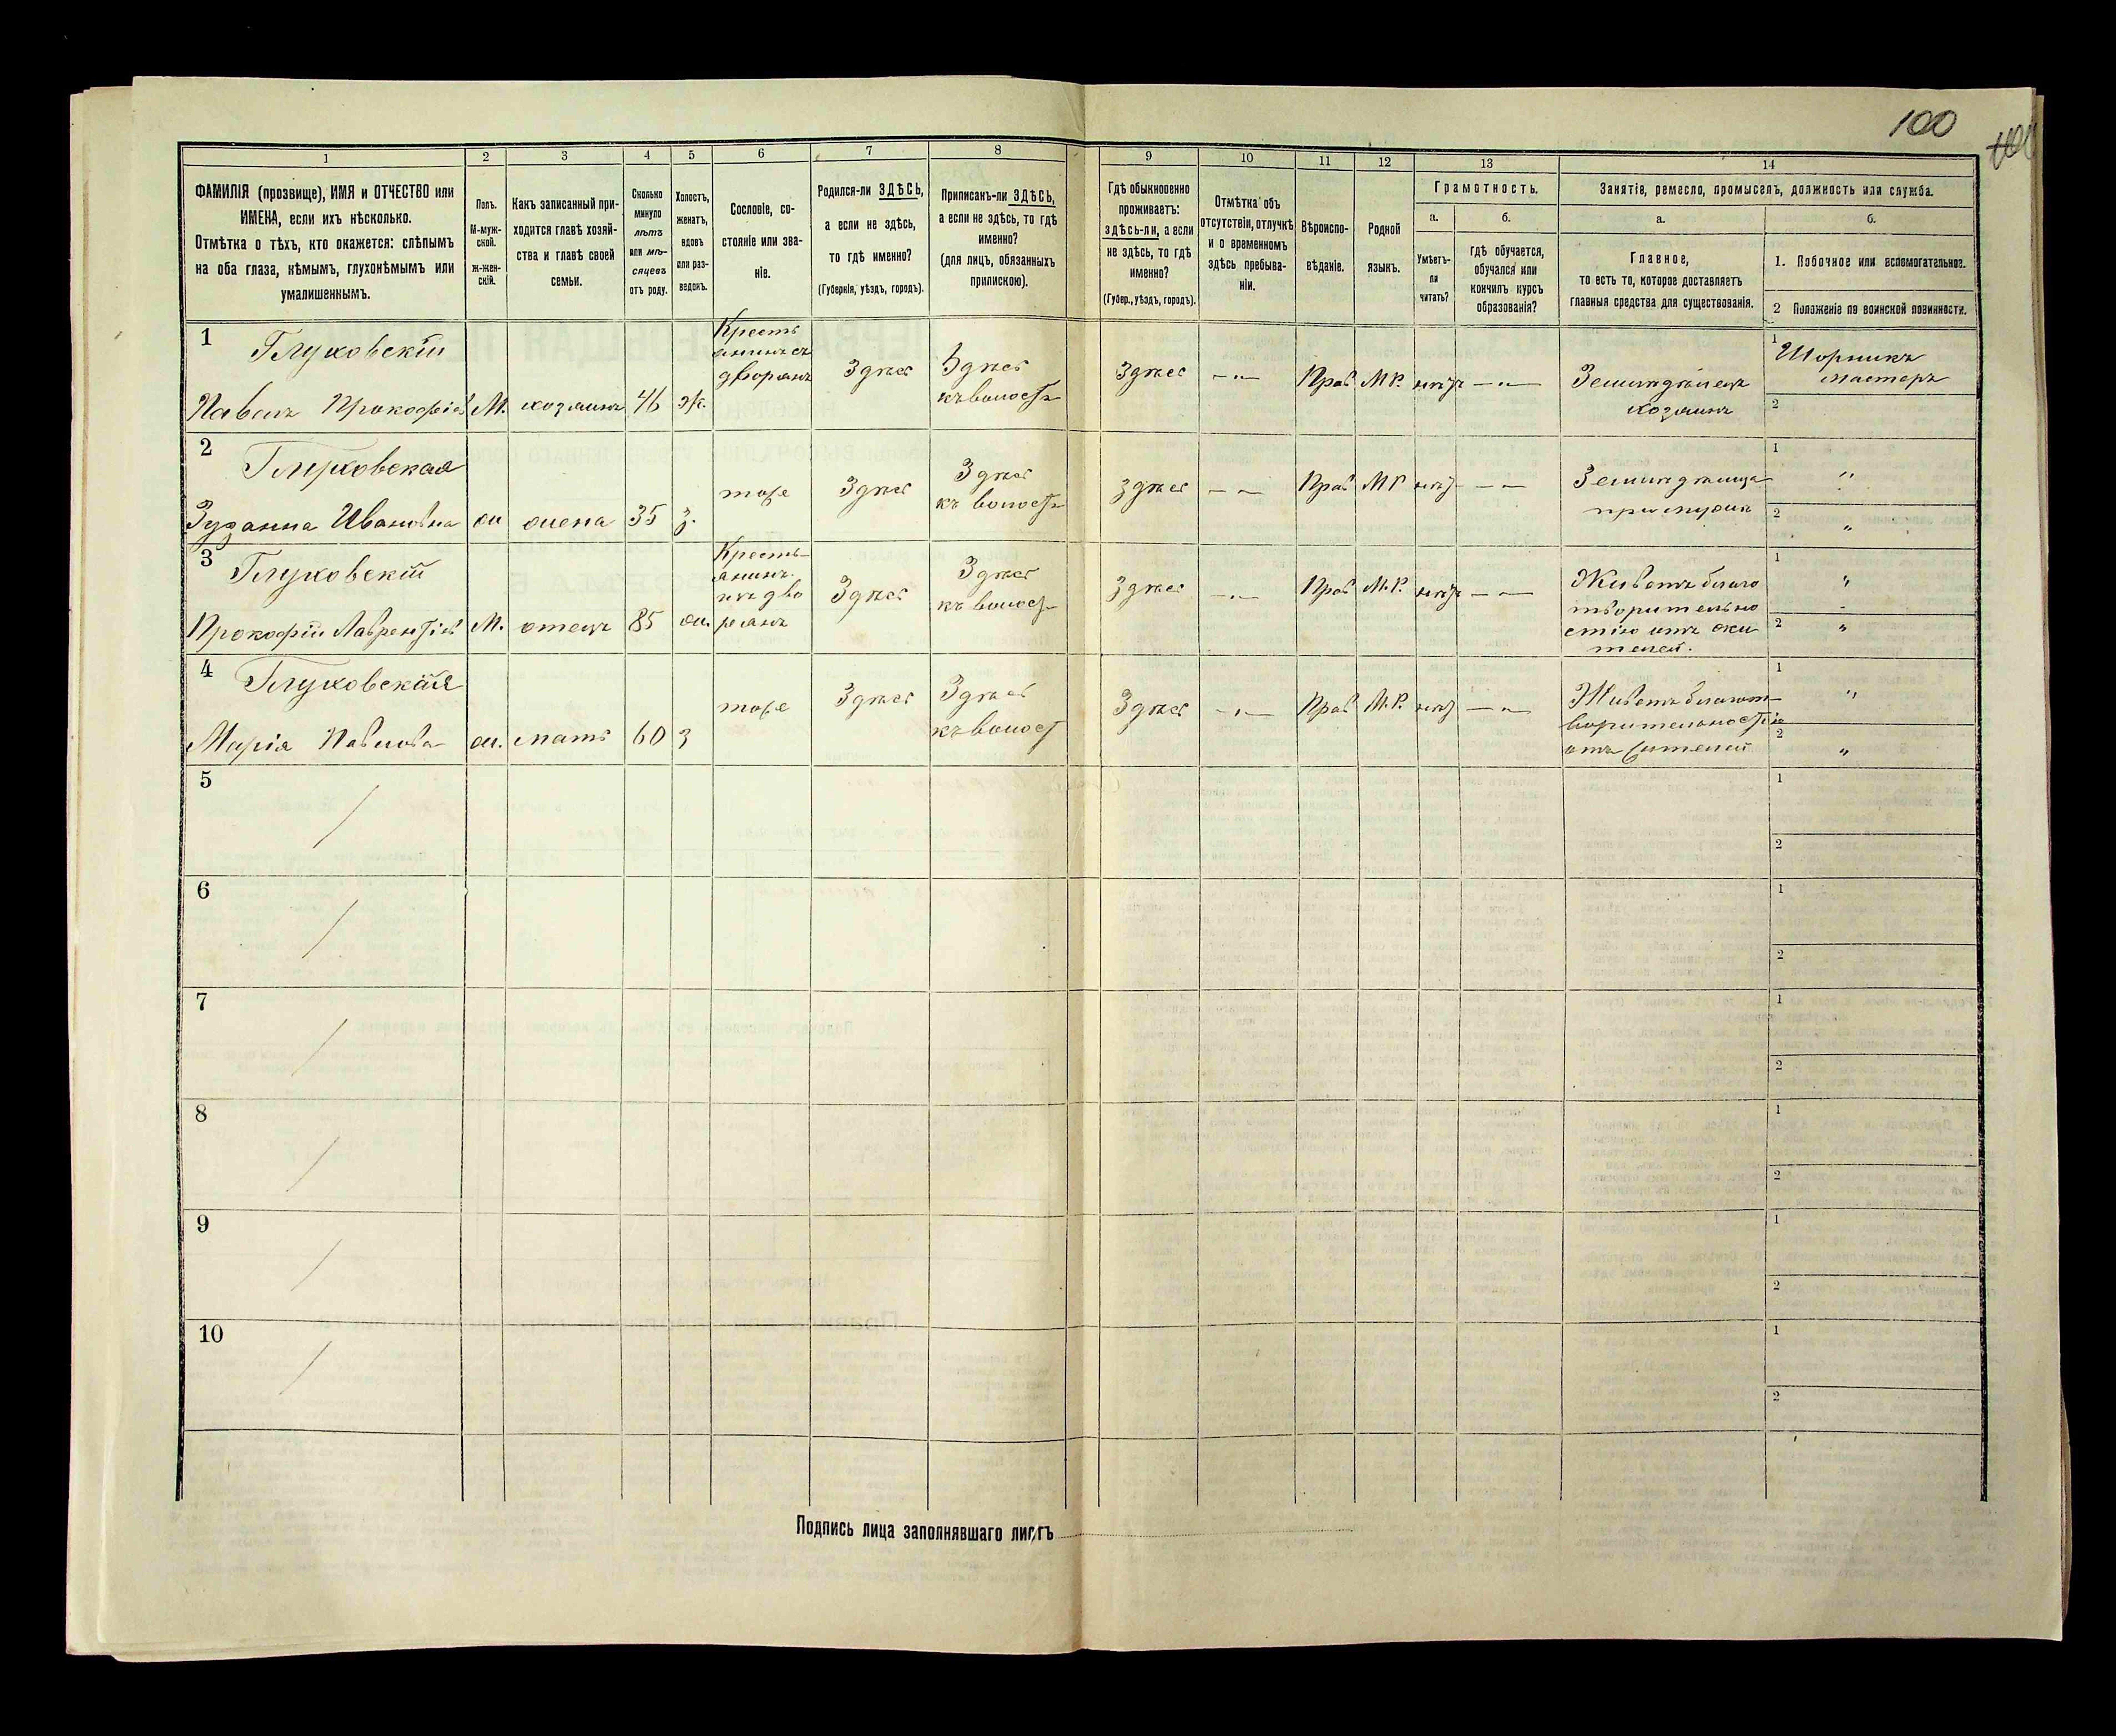 100
1
2
3
4
5
6
7
8
9
10
11
12
13
14
ФАМИЛІЯ (прозвище), ИМЯ и ОТЧЕСТВО или
ИМЕНА, если ихъ нѣсколько.
Отмѣтка о тѣхъ, кто окажется: слѣпымъ
на оба глаза, нѣмымъ, глухонѣмымъ или
умалишеннымъ.
Полъ.
М-муж-
ской.
ж-жен-
скій.
Какъ записанный при-
ходится главѣ хозяй-
ства и главѣ своей
семьи.
Сколько
минуло
лѣтъ
или мѣ-
сяцевъ
отъ роду.
Холостъ,
женатъ,
вдовъ
или раз-
веденъ.
Сословіе, со-
стояніе или зва-
ніе.
Родился-ли ЗДѢСЬ,
а если не здѣсь,
то гдѣ именно?
(Губернія, уѣздъ, городъ).
Приписанъ-ли ЗДѢСЬ,
а если не здѣсь, то гдѣ
именно?
(для лицъ, обязанныхъ
припискою).
Гдѣ обыкновенно
проживаетъ:
здѣсь-ли, а если
не здѣсь, то гдѣ
именно?
(Губер., уѣздъ, городъ).
Отмѣтка объ
отсутствіи, отлучкѣ
и о временномъ
здѣсь пребыва-
ніи.
Вѣроиспо-
вѣданіе.
Родной
языкъ.
Грамотность.
а.
б.
Умѣетъ-
ли
читать?
гдѣ обучается,
обучался или
кончилъ курсъ
образованія?
Занятіе, ремесло, промыселъ, должность или служба.
а.
б.
Главное,
то есть то, которое доставляетъ
главныя средства для существованія.
1. Побочное или вспомогательное.
2 Положеніе по воинской повинности.
1
Глуховскій
Павелъ Прокофіев М. хозяинъ 46 ж.
Кресть
янинъ съ
дворянъ
Здѣс
Здѣс
къ волост
Здѣс
Прав М.Р. нѣт
Земледѣлец
хозяинъ
1 Шорникъ
мастеръ
2
2
Глуховская
Зузанна Ивановна жи жена 35 з.
тоже
Здѣс
Здѣс
къ волост
здѣс
Прав М Р нѣт
Земледѣлица
1 "
2 "
3
Глуховскій
Прокофій Лаврентіев М. отецъ 85 ж.
Кресть-
янинъ
изъ дво
рянъ
Здѣс
Здѣс
къ волост
здѣс
Прав М.Р. нѣт
Живетъ благо
творительно
стію отъ жи
телей.
1 "
2 "
4
Глуховская
Марія Павлова ж. мать 60 з
тоже
Здѣс
Здѣс
къ волост
Здѣс
Прав М.Р. нѣт
Живетъ благот-
ворительностію
отъ жителей
1 "
2 "
5
1
2
6
1
2
7
1
2
8
1
2
9
1
2
10
1
2
Подпись лица заполнявшаго листъ